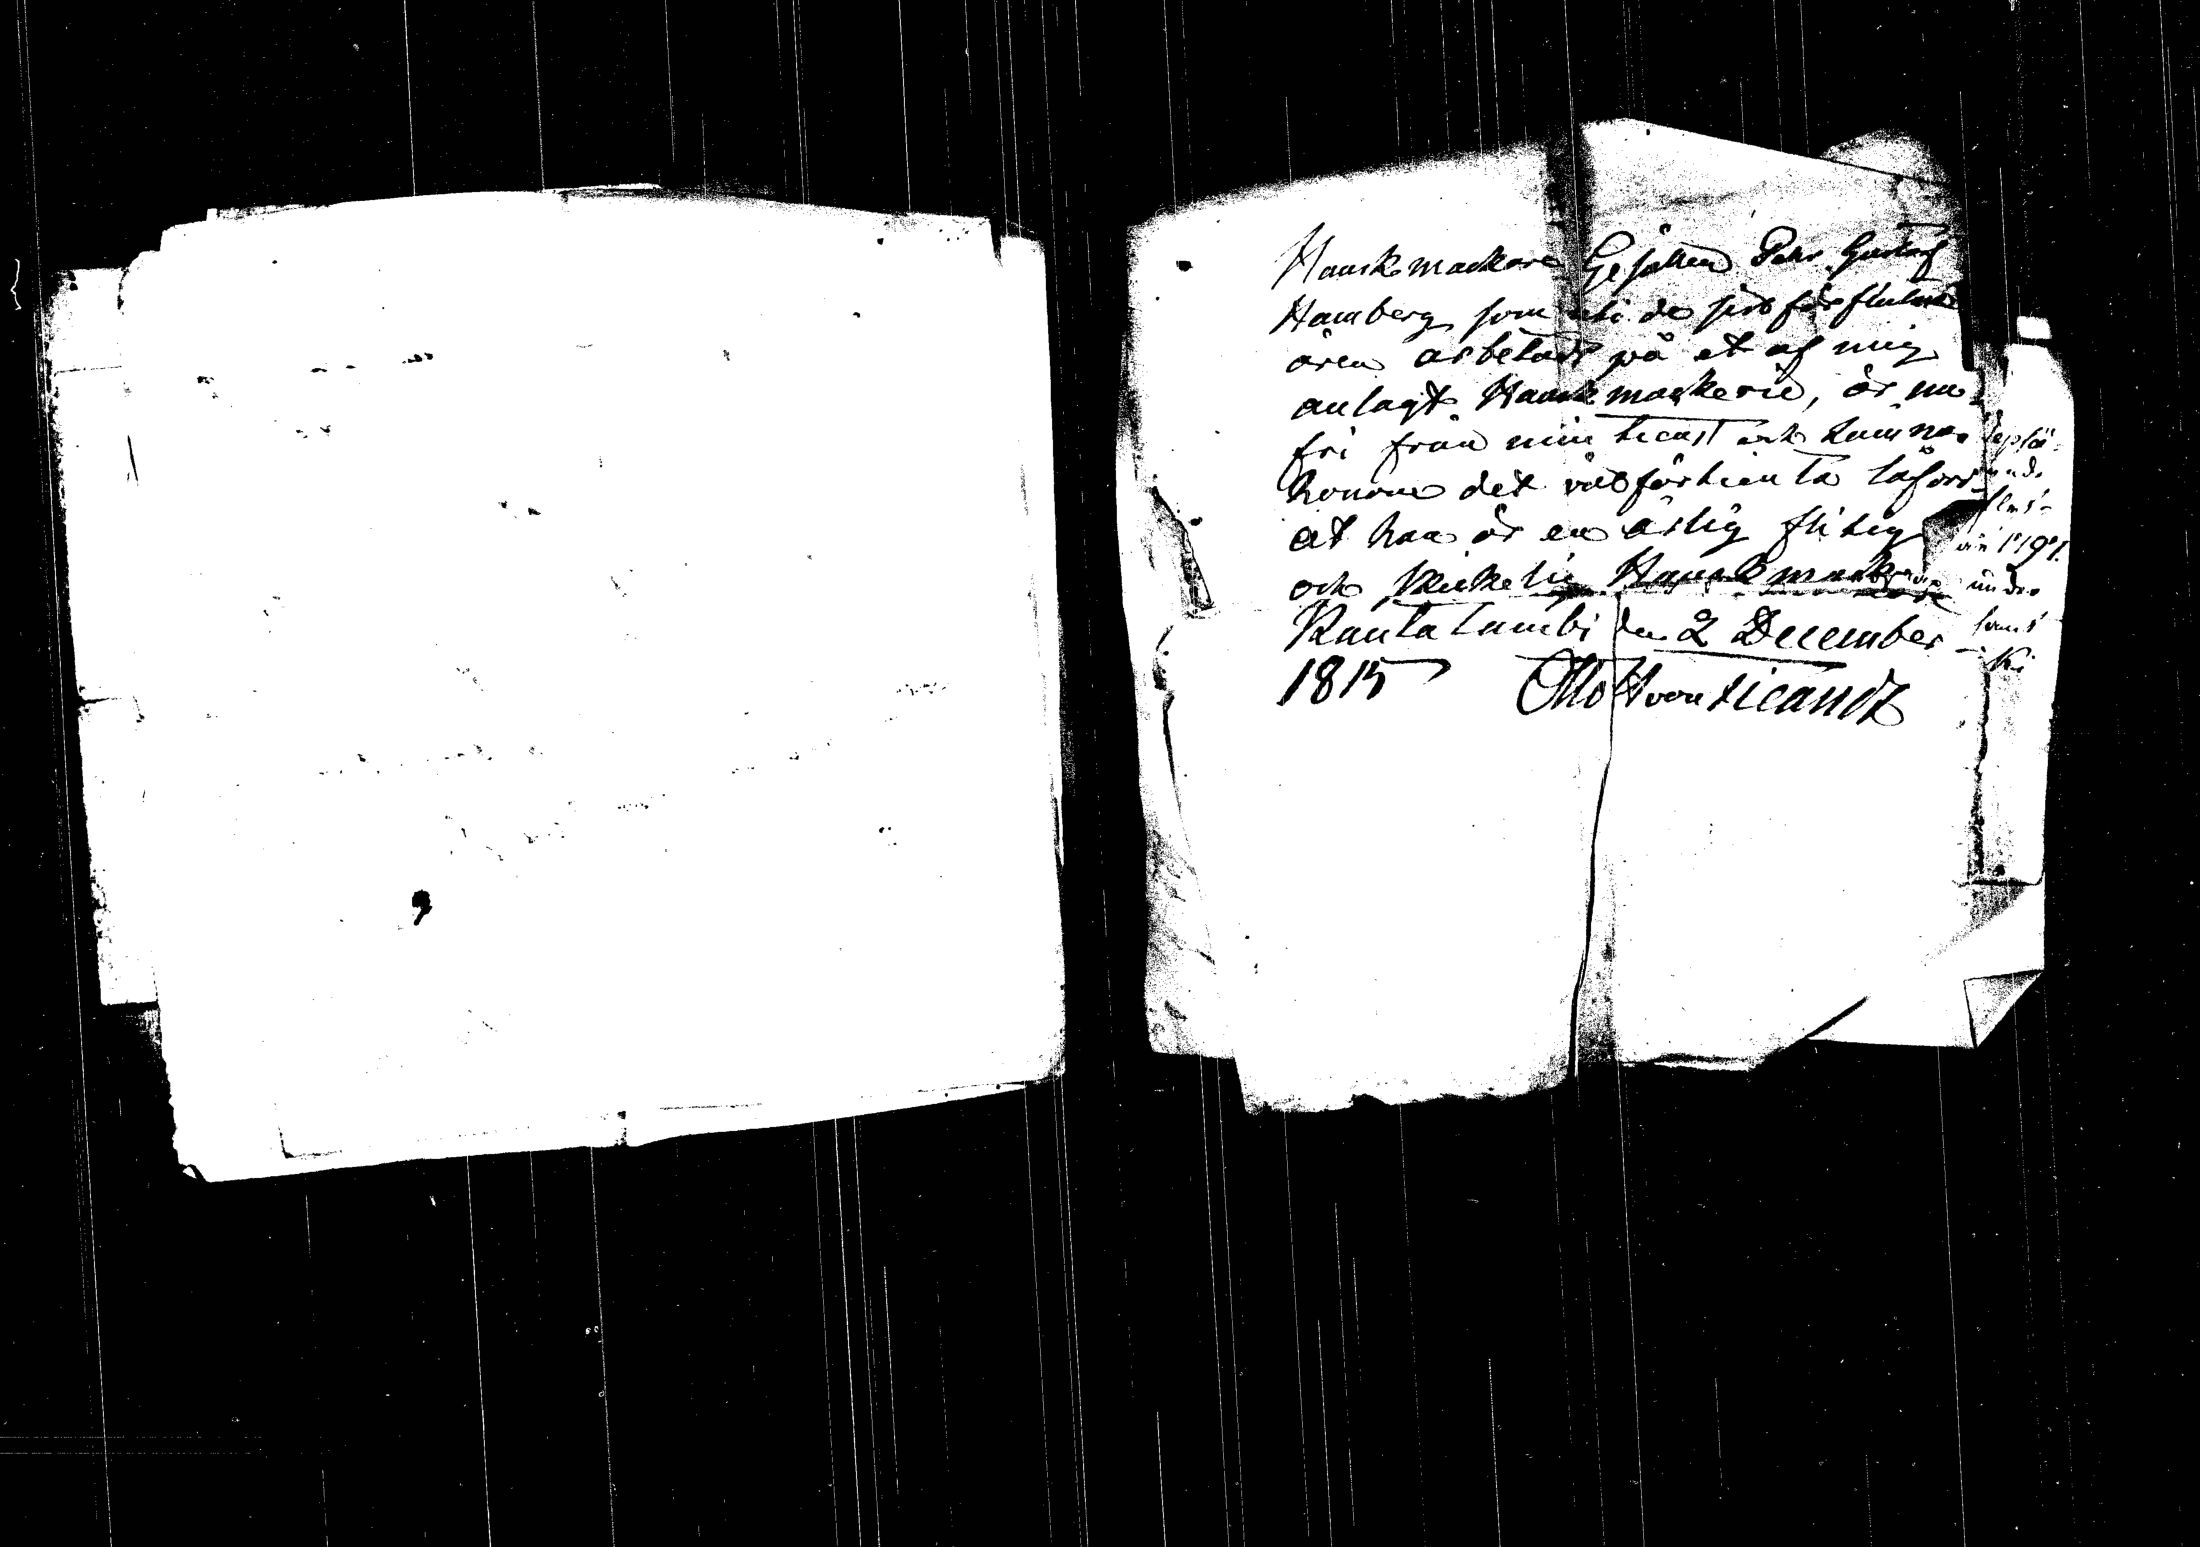 Hanskmackare Gesällen Pehr Gustaf
Hamberg som uti de sist förflutne
åren arbetadt på et af mig
anlagt Hanskmackerie, är nu
fri från min tienst och lämnar
honom det välförtienta låford
at han är en ärlig flitig
och skickelig Hanskmackare
Rautalambi den 2 December
1815 Otto H von
under